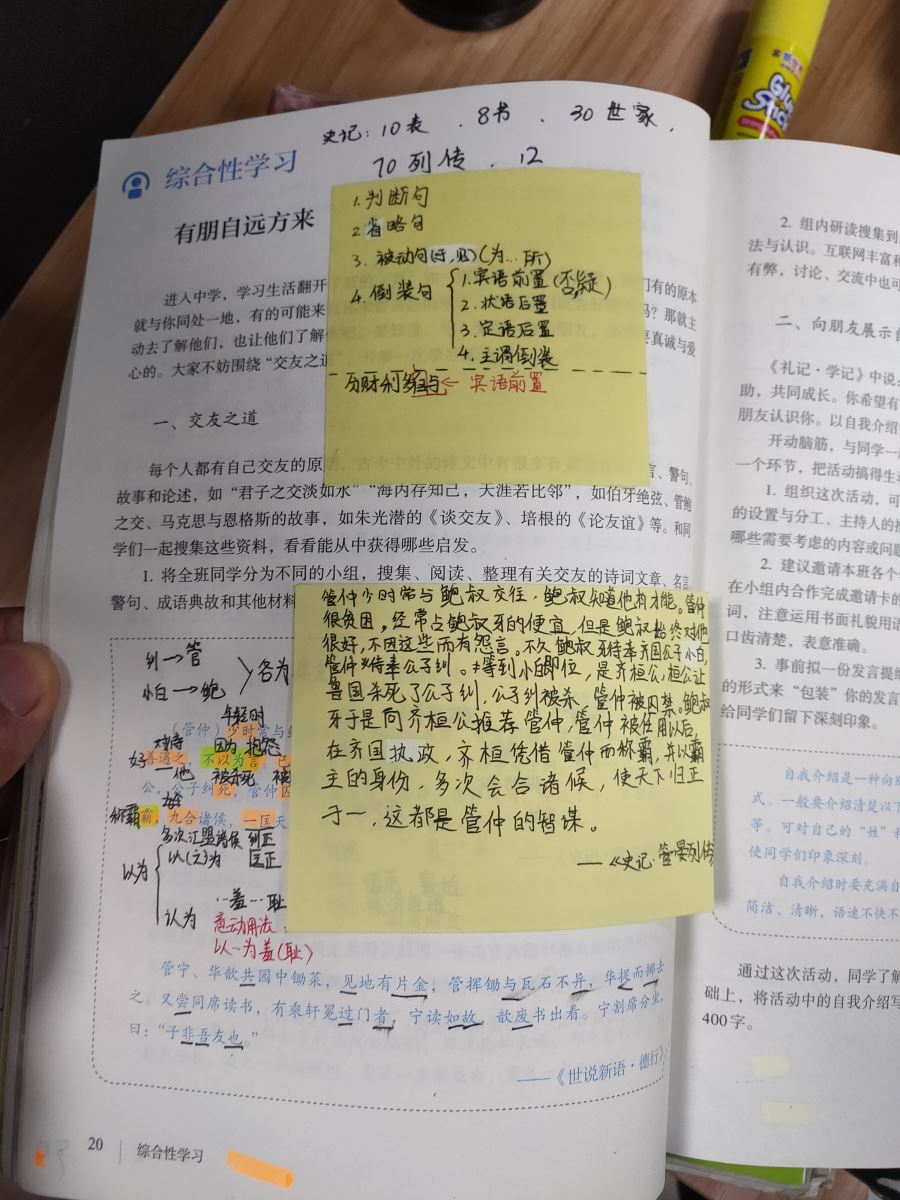 史记：10表 . 8书 . 30世家，
70列传 . 12
综合性学习
有朋自远方来
1.判断句
2.省略句
3.被动句(于,见)(为…所)
4.倒装句
1.宾语前置(否,疑)
2.状语后置
3.定语后置
4.主谓倒装
分财利多自与← 宾语前置
进入中学，学习生活翻开 们有的原本
就与你同处一地，有的可能来 吗？那就主
动去了解他们，也让他们了解 要真诚与爱
心的。大家不妨围绕“交友之道”
一、交友之道
每个人都有自己交友的原 古今中外的诗文中有很多有 言、警句、
故事和论述，如“君子之交淡如水”“海内存知己，天涯若比邻”，如伯牙绝弦、管鲍
之交、马克思与恩格斯的故事，如朱光潜的《谈交友》、培根的《论友谊》等。和同
学们一起搜集这些资料，看看能从中获得哪些启发。
1. 将全班同学分为不同的小组，搜集、阅读、整理有关交友的诗词文章、名言
警句、成语典故和其他材料
管仲少时常与鲍叔交往，鲍叔知道他有才能。管仲
很贫困，经常占鲍叔牙的便宜，但是鲍叔始终对他
很好，不因这些而有怨言。不久鲍叔牙侍奉齐国公子小白，
管仲侍奉公子纠。等到小白即位，是齐桓公，桓公让
鲁国杀死了公子纠，公子纠被杀，管仲被囚禁。鲍叔
牙于是向齐桓公推荐管仲，管仲被任用以后，
在齐国执政，齐桓凭借管仲而称霸，并以霸
主的身份，多次会合诸候，使天下归正
于一，这都是管仲的智谋。
—《史记·管晏列传
纠→管
小白→鲍
各为
年轻时
（管仲）少时常与鲍
对待 因为 抱怨
好 善遇之，不以为言。已
他 被杀死 被
公，公子纠死，管仲囚
称霸 霸，九合诸侯，一匡天
多次汇盟诸侯 纠正
以为 以(之)为 匡正
…羞…耻
认为 意动用法
以…为羞(耻)
管宁、华歆共园中锄菜，见地有片金，管挥锄与瓦石不异，华捉而掷去
之。又尝同席读书，有乘轩冕过门者，宁读如故，歆废书出看。宁割席分坐，
曰：“子非吾友也。”
——《世说新语·德行》
20 综合性学习
Glue
Stick
2. 组内研读搜集到
法与认识。互联网丰富和
有弊，讨论、交流中也可
二、向朋友展示自
《礼记·学记》中说：
助，共同成长。你希望有
朋友认识你。以自我介绍
开动脑筋，与同学一
一个环节，把活动搞得生动
1. 组织这次活动，可
的设置与分工、主持人的推
哪些需要考虑的内容或问题
2. 建议邀请本班各个
在小组内合作完成邀请卡的
词，注意运用书面礼貌用语
口齿清楚，表意准确。
3. 事前拟一份发言提纲
的形式来“包装”你的发言
给同学们留下深刻印象。
自我介绍是一种向别
式。一般要介绍清是以下
等。可对自己的“姓”和
使同学们印象深刻。
自我介绍时要充满自
简洁、清晰，语速不快不
通过这次活动，同学了解
础上，将活动中的自我介绍写
400字。